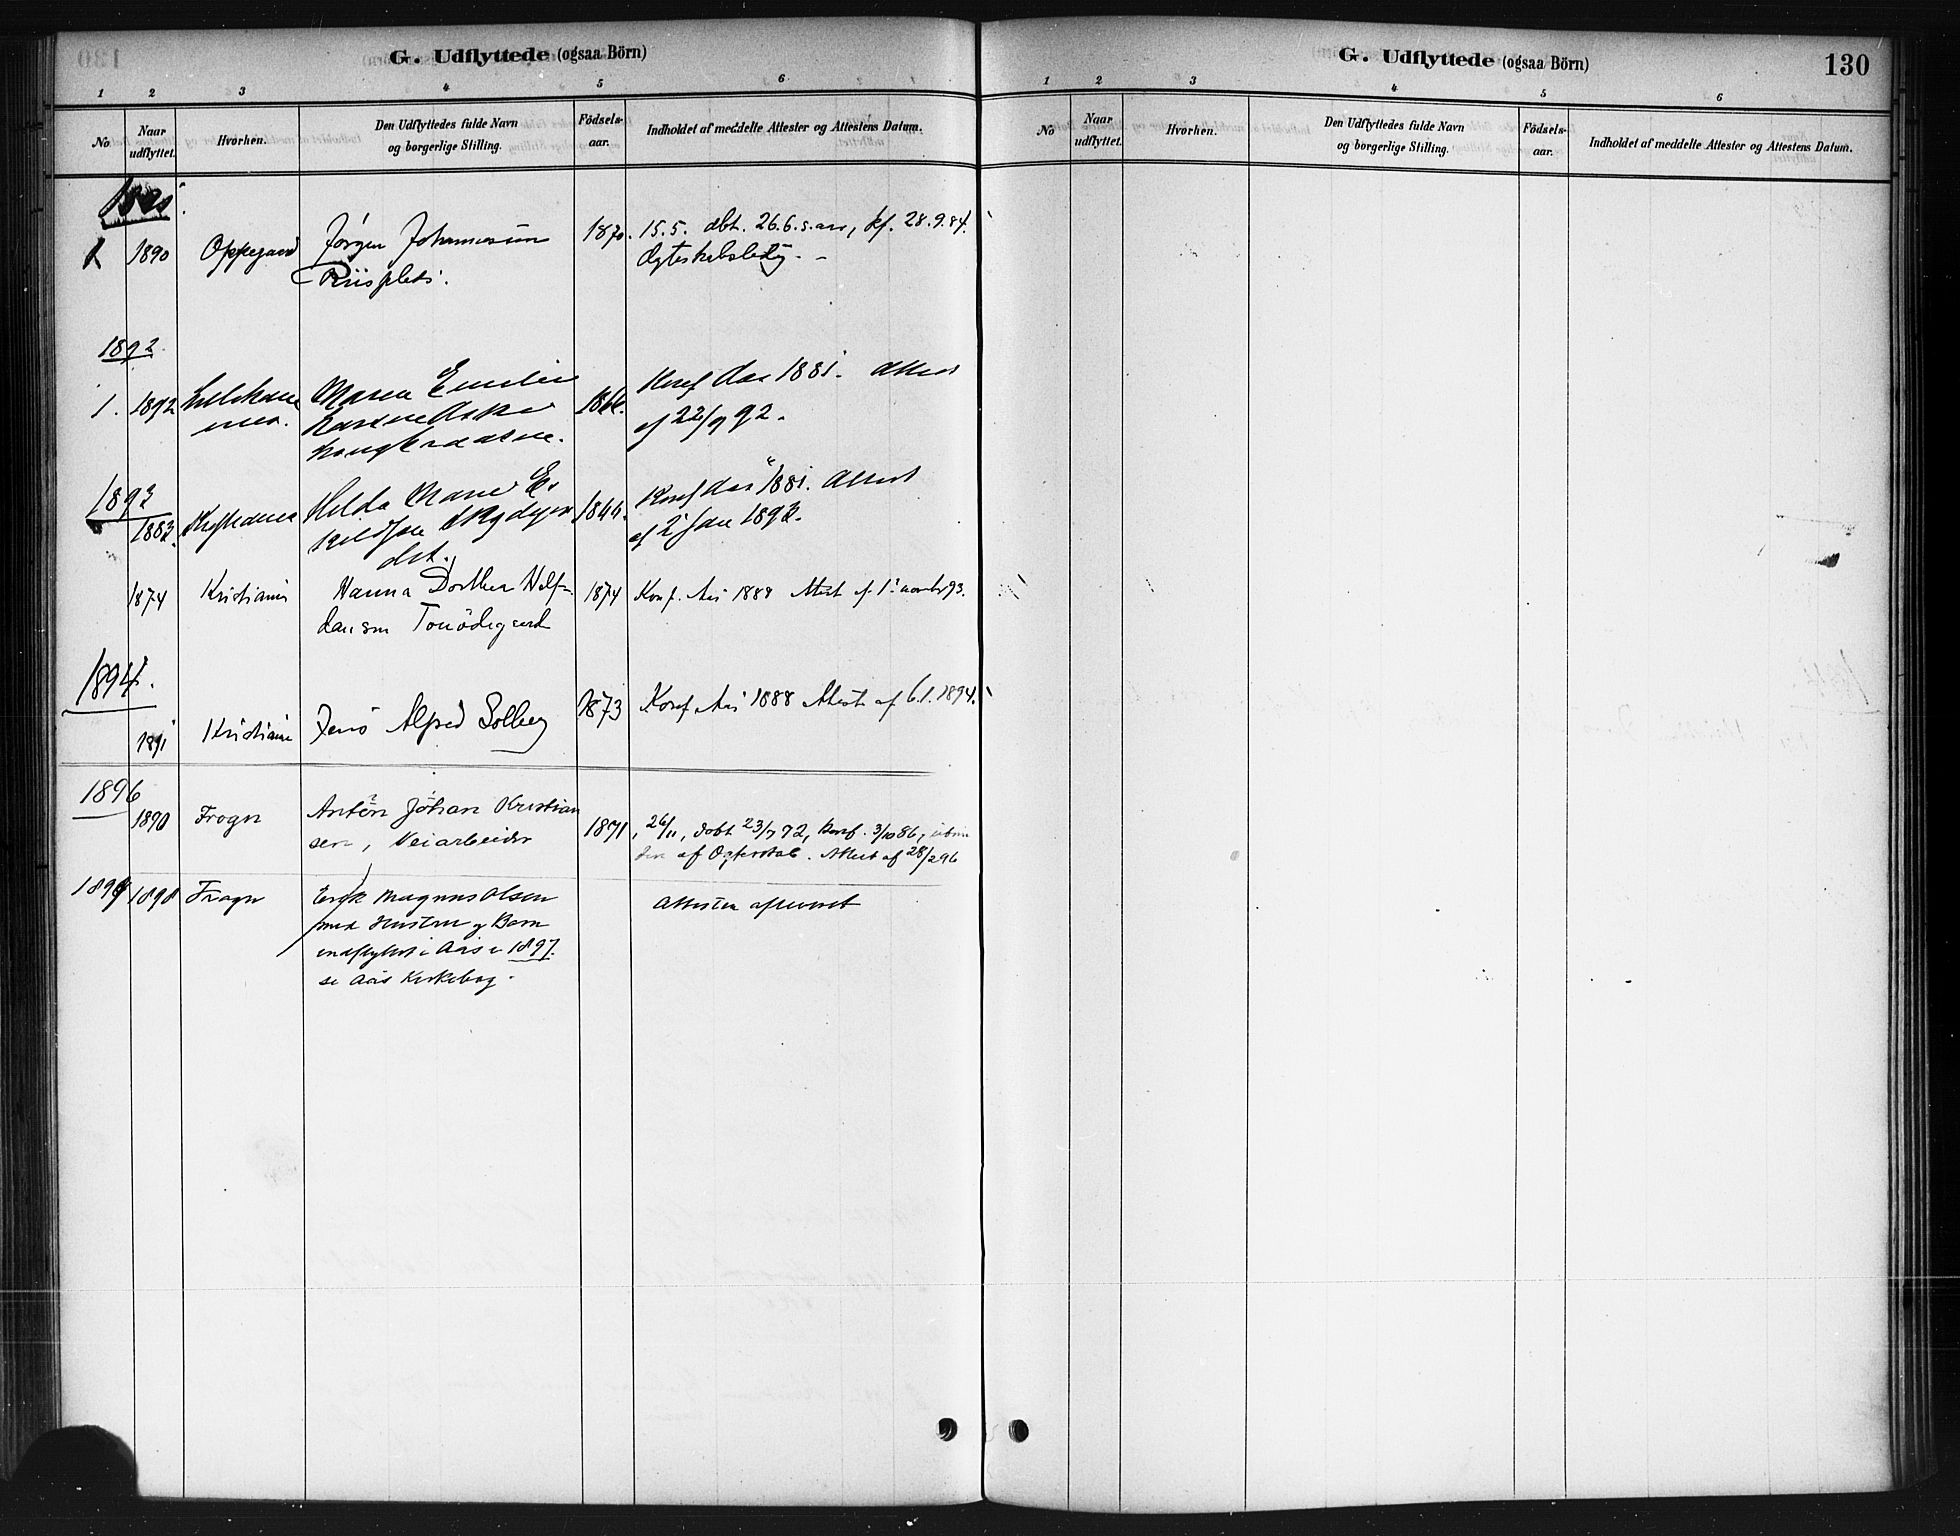 G. Udflyttede (ogsaa Börn)
1 2 3 4 5 6
No
Naar udflyttet.
Hvorhen.
Den Udflyttedes fulde Navn
og borgerlige Stilling.
Födsels-
aar.
Indholdet af meddelte Attester og Attestens Datum.
1890 Oppegaard Jørgen Johannesen 1870. 15.5. dbt. 26.6. s. aar, kf. 28.9.84.
Riisplads. Ægteskabsledig.
1892
1. 1892 Maren Emilie 1866. Konf Aas 1881. Attest
af 22/9 92.
1893
1883. Hilda Marie Es 1866. Konf Aas 1881. Attest
kildsen
af 2 Jan 1893.
1874 Kristiania Hanna Dorthea Half- 1874 Konf. Aas 1888 Attest af 1. novbr 93.
dansen
1894.
1891 Kristiania Jens Alfred Solberg 1873 Konf Aas 1888 Attest af 6.1.1894.
1896
1890 Frogn Anton Johan Kristian 1871 26/11, døbt 23/7 72, Konf. 3/10 86,
sen, Veiarbeider af Ægteskab. Attest af 28/2 96
1898 Frogn Erik Magnus Olsen Attesten afleveret
med Hustru og Børn
indflyttet i Aas i 1897.
se Aas Kirkebog.
G. Udflyttede (ogsaa Börn)
130
1 2 3 4 5 6
No
Naar udflyttet.
Hvorhen.
Den Udflyttedes fulde Navn
og borgerlige Stilling.
Födsels-
aar.
Indholdet af meddelte Attester og Attestens Datum.